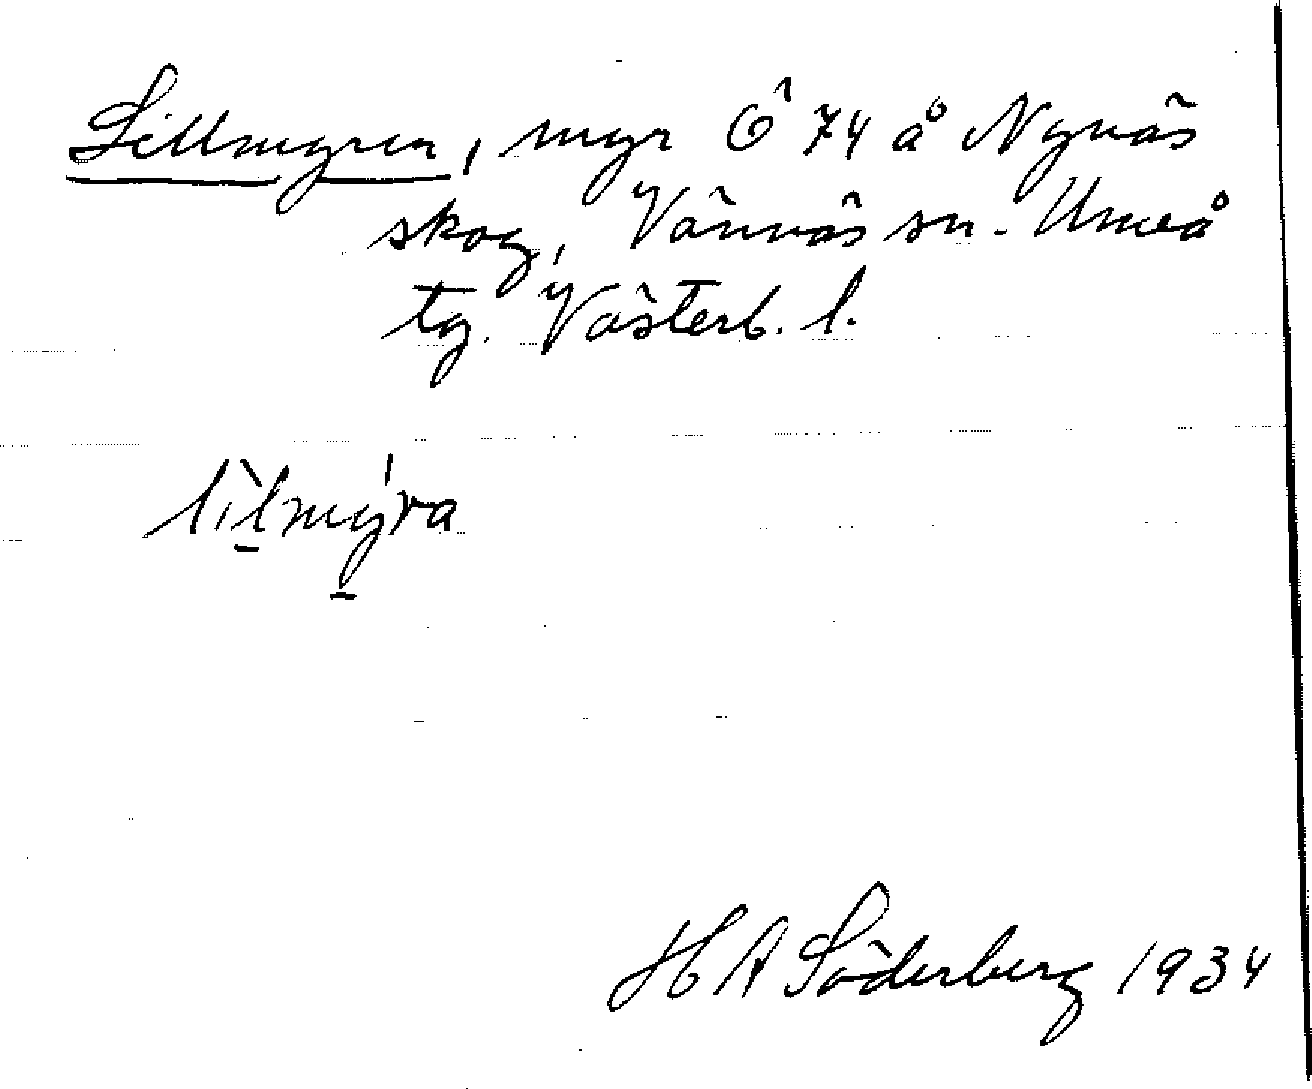 Lillmyren, myr Ö 74 å Nynäs
skog, Vännäs sn. Umeå
tg. Västerb. l.
lìlmý̱ra
H A Söderberg 1934